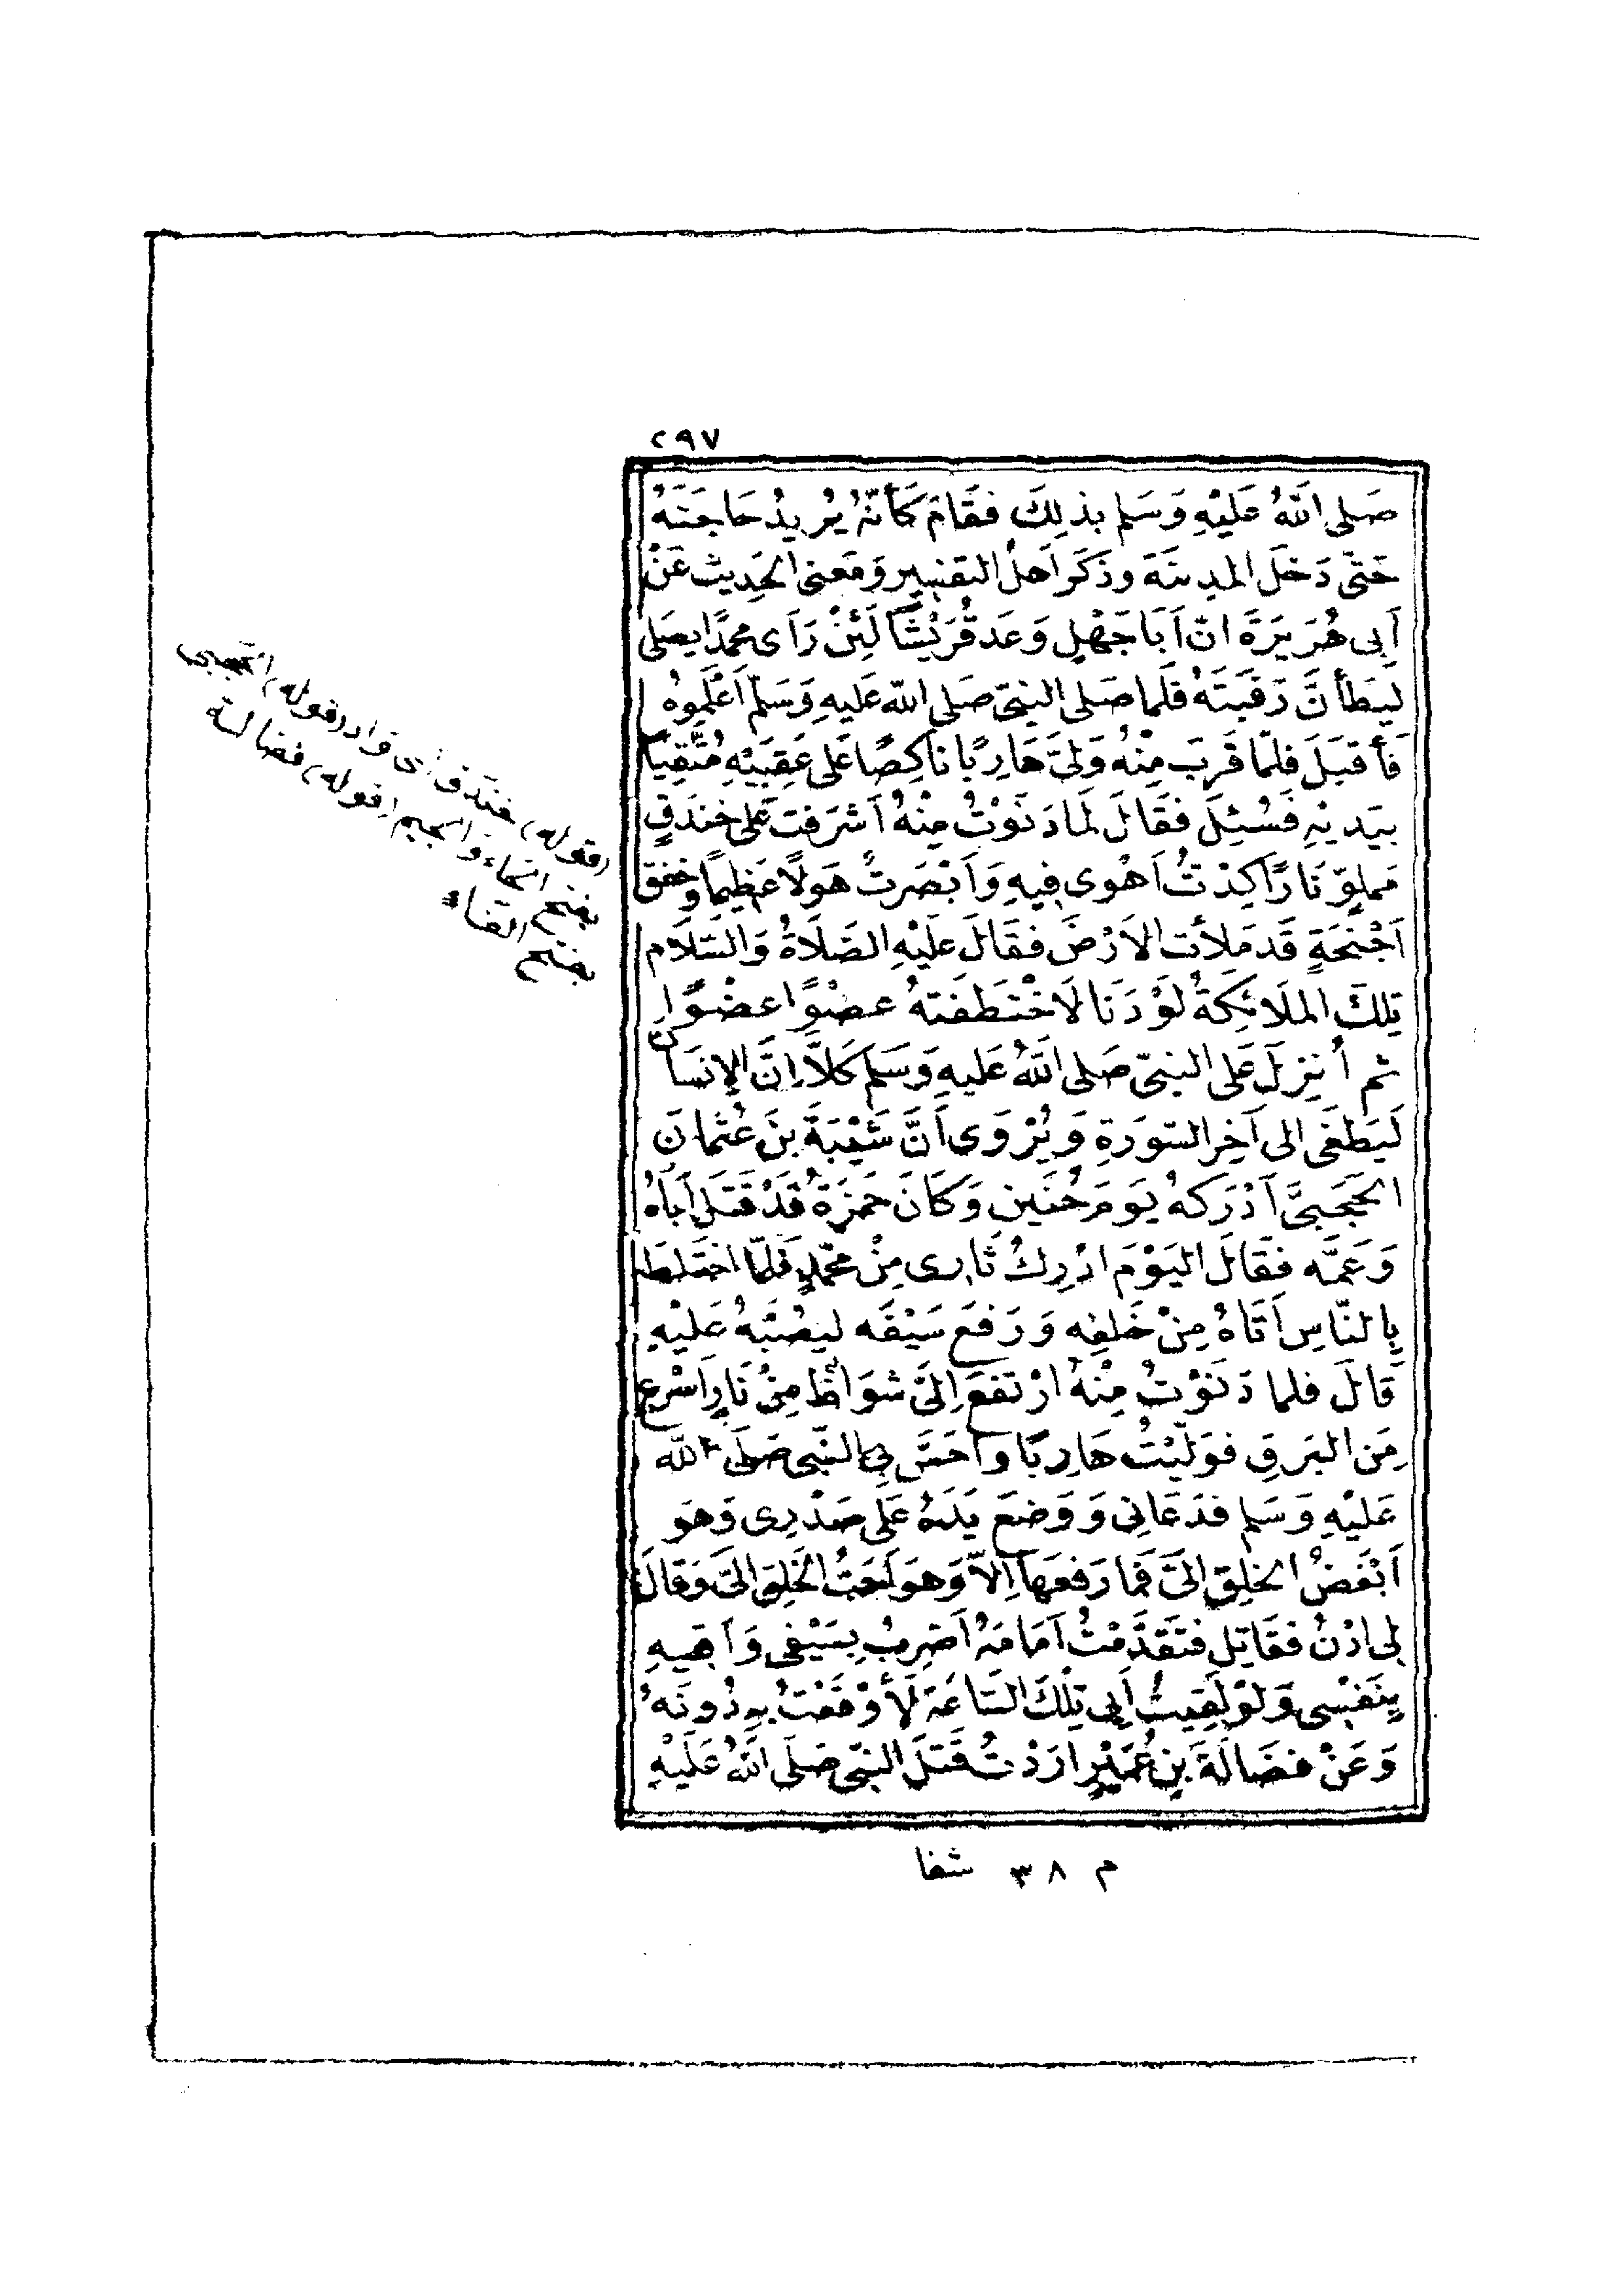 ٢٩٧
صَلى اللَّهُ عَلَيْهِ وَسَلم بذلِكَ فقَامَ كَأنّهُ يُريدُ حَاجَتَهُ
حَتّى دَخَلَ المدِينَةَ وذكَرَ اَهلُ التفسِيرِ وَمَعنى الحَدِيث عَنْ
اَبى هُرَيرَةَ انّ اَبَا جَهْلٍ وَعَد قُرَيْشًا لَئِنْ رَاَى محمدًا يصَلى
لَيَطأنَّ رَقَبَتَهُ فَلَما صَلى النبىّ صَلى اللّه عَليهِ وَسَلمّ اَعْلَموُه
فَأقبَلَ فلمّا قَرُبَ مِنْهُ وَلىَّ هَارِبًا نَاكِصًا عَلى عَقِبَيْهِ مُتَّقِيًا
بيَديْهِ فَسُئِلَ فقَالَ لَما دَنَوْتُ مِنْهُ اَشرَفت عَلى خَندَقٍ
مَملوٍّ نَارًا كِدْتُ اَهْوى فِيهِ وَاَبْصَرتُ هَولًا عَظِيمًا وخَفق
اَجْنحَةٍ قَد مَلأت الاَرْضَ فقَالَ عَلَيْهِ الصَّلَاةُ وَالسَّلَام
تِلكَ الملَائِكَةُ لَوْ دَنَا لَاخْتَطفَتهُ عضْوًا عضْوًا
ثم أُنزِلَ عَلى النبىّ صَلى اللَّهُ عَليهِ وَسَلم كَلاَّ اِنَّ الإنسَان
لَيَطغَى الى آخِرِ السّورَةِ وَيُرْوَى اَنَّ شَيْبَةَ بنَ عُثمانَ
الحَجَبىَّ اَدْرَكهُ يَومَ حُنَينٍ وَكَانَ حَمزَةُ قَدْ قَتَلَ اَبَاهُ
وَعَمَّه فقَالَ اليَوْمَ ادْرِكُ ثَارِى مِنْ محَمّدٍ فَلَمّا اختَلط
بِالنّاسِ اَتَاهُ مِنْ خَلفِه وَرَفَعَ سَيْفَه ليصُبَّهُ عَليْهِ
قَالَ فلما دَنَوْتُ مِنْهُ ارْتَفعَ اِلَىَّ شوَاظ مِنْ نَارٍ اَسْرع
مِنَ البَرقِ فوَلّيْتُ هَارِبًا وَاَحَسَّ بِى النّبِى صَلّى اللّه
عَلَيْهِ وَسَلم فدَعَانِى وَوَضعَ يَدَهُ عَلى صَدْرِى وَهوَ
اَبْغَضُ الخلقِ الىَّ فمَا رَفعَهَا اِلاّ وَهوَ اَحَبُّ الخَلِق الىّ وَقالَ
لِى ادْنُ فقَاتِل فتَقَدَّمْتُ اَمَامَهُ اَضرِبُ بسَيْفى وَاَقِيهِ
بِنَفْسِى وَلَوْ لَقِيتُ اَبِى تِلْكَ السَّاعَةَ لَأَوْقَعْتُ بهِ دُونَهُ
وَعَنْ فضَالَةَ بنِ عُمَيْرٍ ارَدْتُ قَتلَ النبّىِ صَلّى اللَّهُ عَلَيْهِ
(قوله) خندق أى واد (قوله) الحجبى
بفتح الحاء والجيم (قوله) فضالة
بفتح الفاء
م ٣٨ شفا